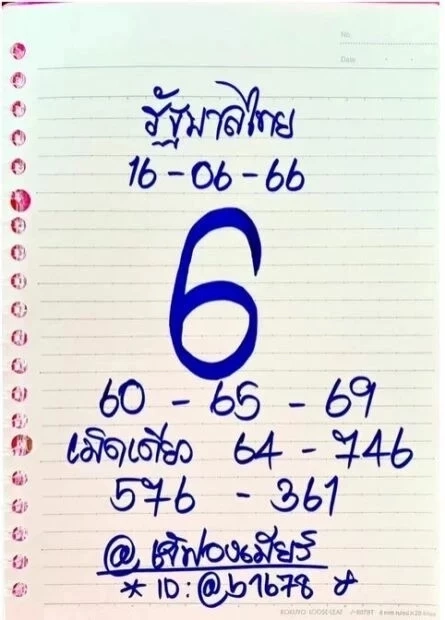 No.
Date
รัฐบาลไทย
16-06-66
6
60 - 65 - 69
เม็ดเดียว 64 - 746
576 - 361
@ เจ๊ฟองเบียร์
* ID: @b1678
KOKUYO LOOSE-LEAF